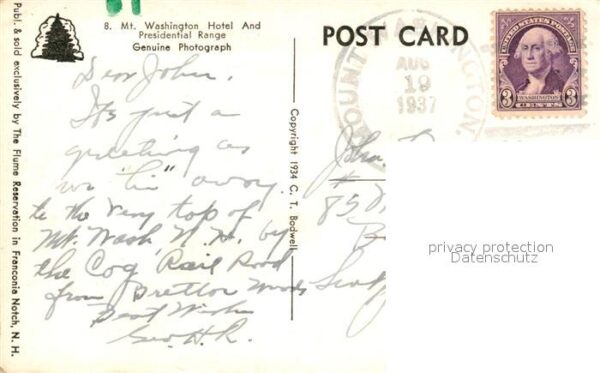 8. Mt. Washington Hotel And
Presidential Range
Genuine Photograph
POST CARD
Publ. & sold exclusively by The Flume Reservation in Franconia Notch, N. H.
Copyright 1934 C. T. Bodwell
MOUNT WASHINGTON,
AUG
19
1937
UNITED STATES POSTAGE
WASHINGTON
3 CENTS 3
Dear John,
It's just a
greeting as
we "hi" away
to the very top of
Mt. Wash N. H. by
the Cog Rail Road
from Bretton Woods
Best Wishes
Geo. H. R.
John
85
privacy protection
Datenschutz